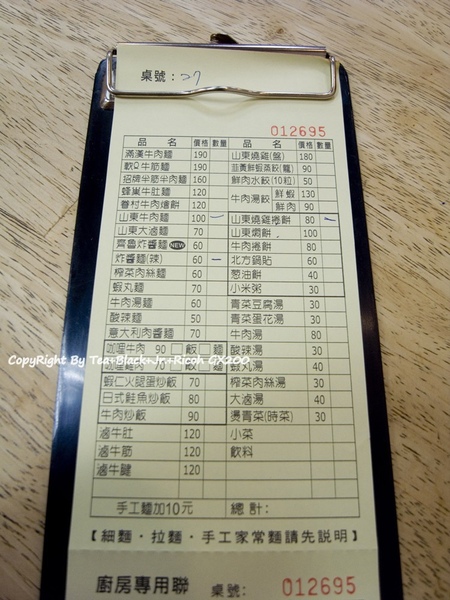 桌號：27
012695
品 名 價格 數量 品 名 價格 數量
滿漢牛肉麵 190 山東燒雞(盤) 180
軟Q牛筋麵 190 韮黃鮮蝦蒸餃(籠) 90
招牌半筋半肉麵 160 鮮肉水餃(10粒) 50
蜂巢牛肚麵 120 牛肉湯餃 鮮蝦 130
眷村牛肉燴餅 120 鮮肉 90
山東牛肉麵 100 一 山東燒雞捲餅 80 一
山東大滷麵 70 山東燜餅 100
齊魯炸醬麵 NEW 60 牛肉捲餅 80
炸醬麵(辣) 60 一 北方鍋貼 60
榨菜肉絲麵 60 蔥油餅 40
蝦丸麵 70 小米粥 30
牛肉湯麵 60 青菜豆腐湯 30
酸辣麵 50 青菜蛋花湯 30
意大利肉醬麵 70 牛肉湯 80
咖哩牛肉 90 □飯□麵 酸辣湯 30
咖哩雞肉 70 □飯□麵 蝦丸湯 40
蝦仁火腿蛋炒飯 70 榨菜肉絲湯 30
日式鮭魚炒飯 80 大滷湯 40
牛肉炒飯 90 燙青菜(時菜) 30
滷牛肚 120 小菜
滷牛筋 120 飲料
滷牛腱 120
手工麵加10元 總計：
【細麵·拉麵·手工家常麵請先說明】
廚房專用聯 桌號： 012695
CopyRight By Tea+Black+Jr.+Ricoh GX200